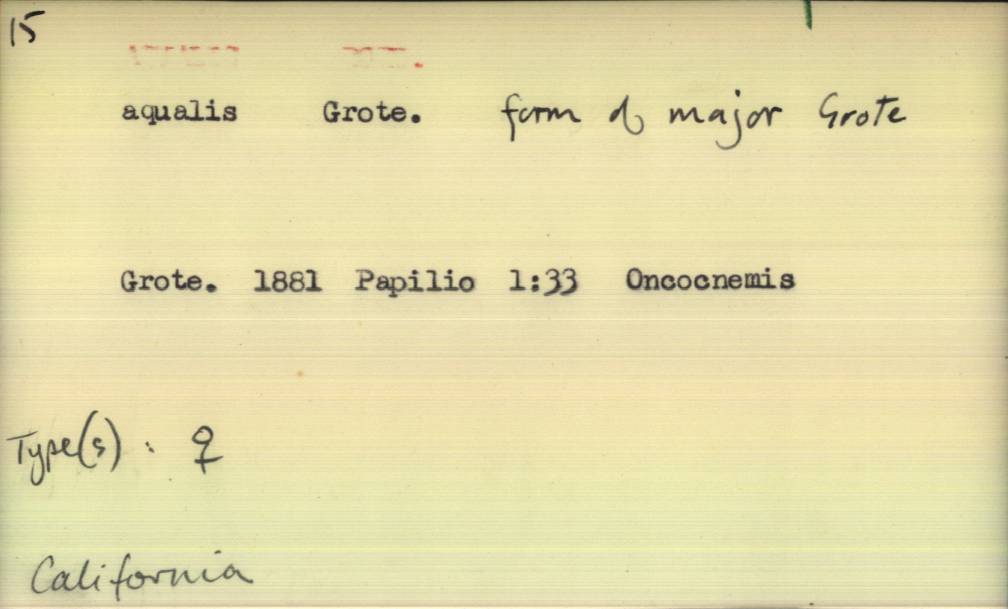 15
aqualis Grote. form of major Grote
Grote. 1881 Papilio 1:33 Oncocnemis
Type(s): ♀
California